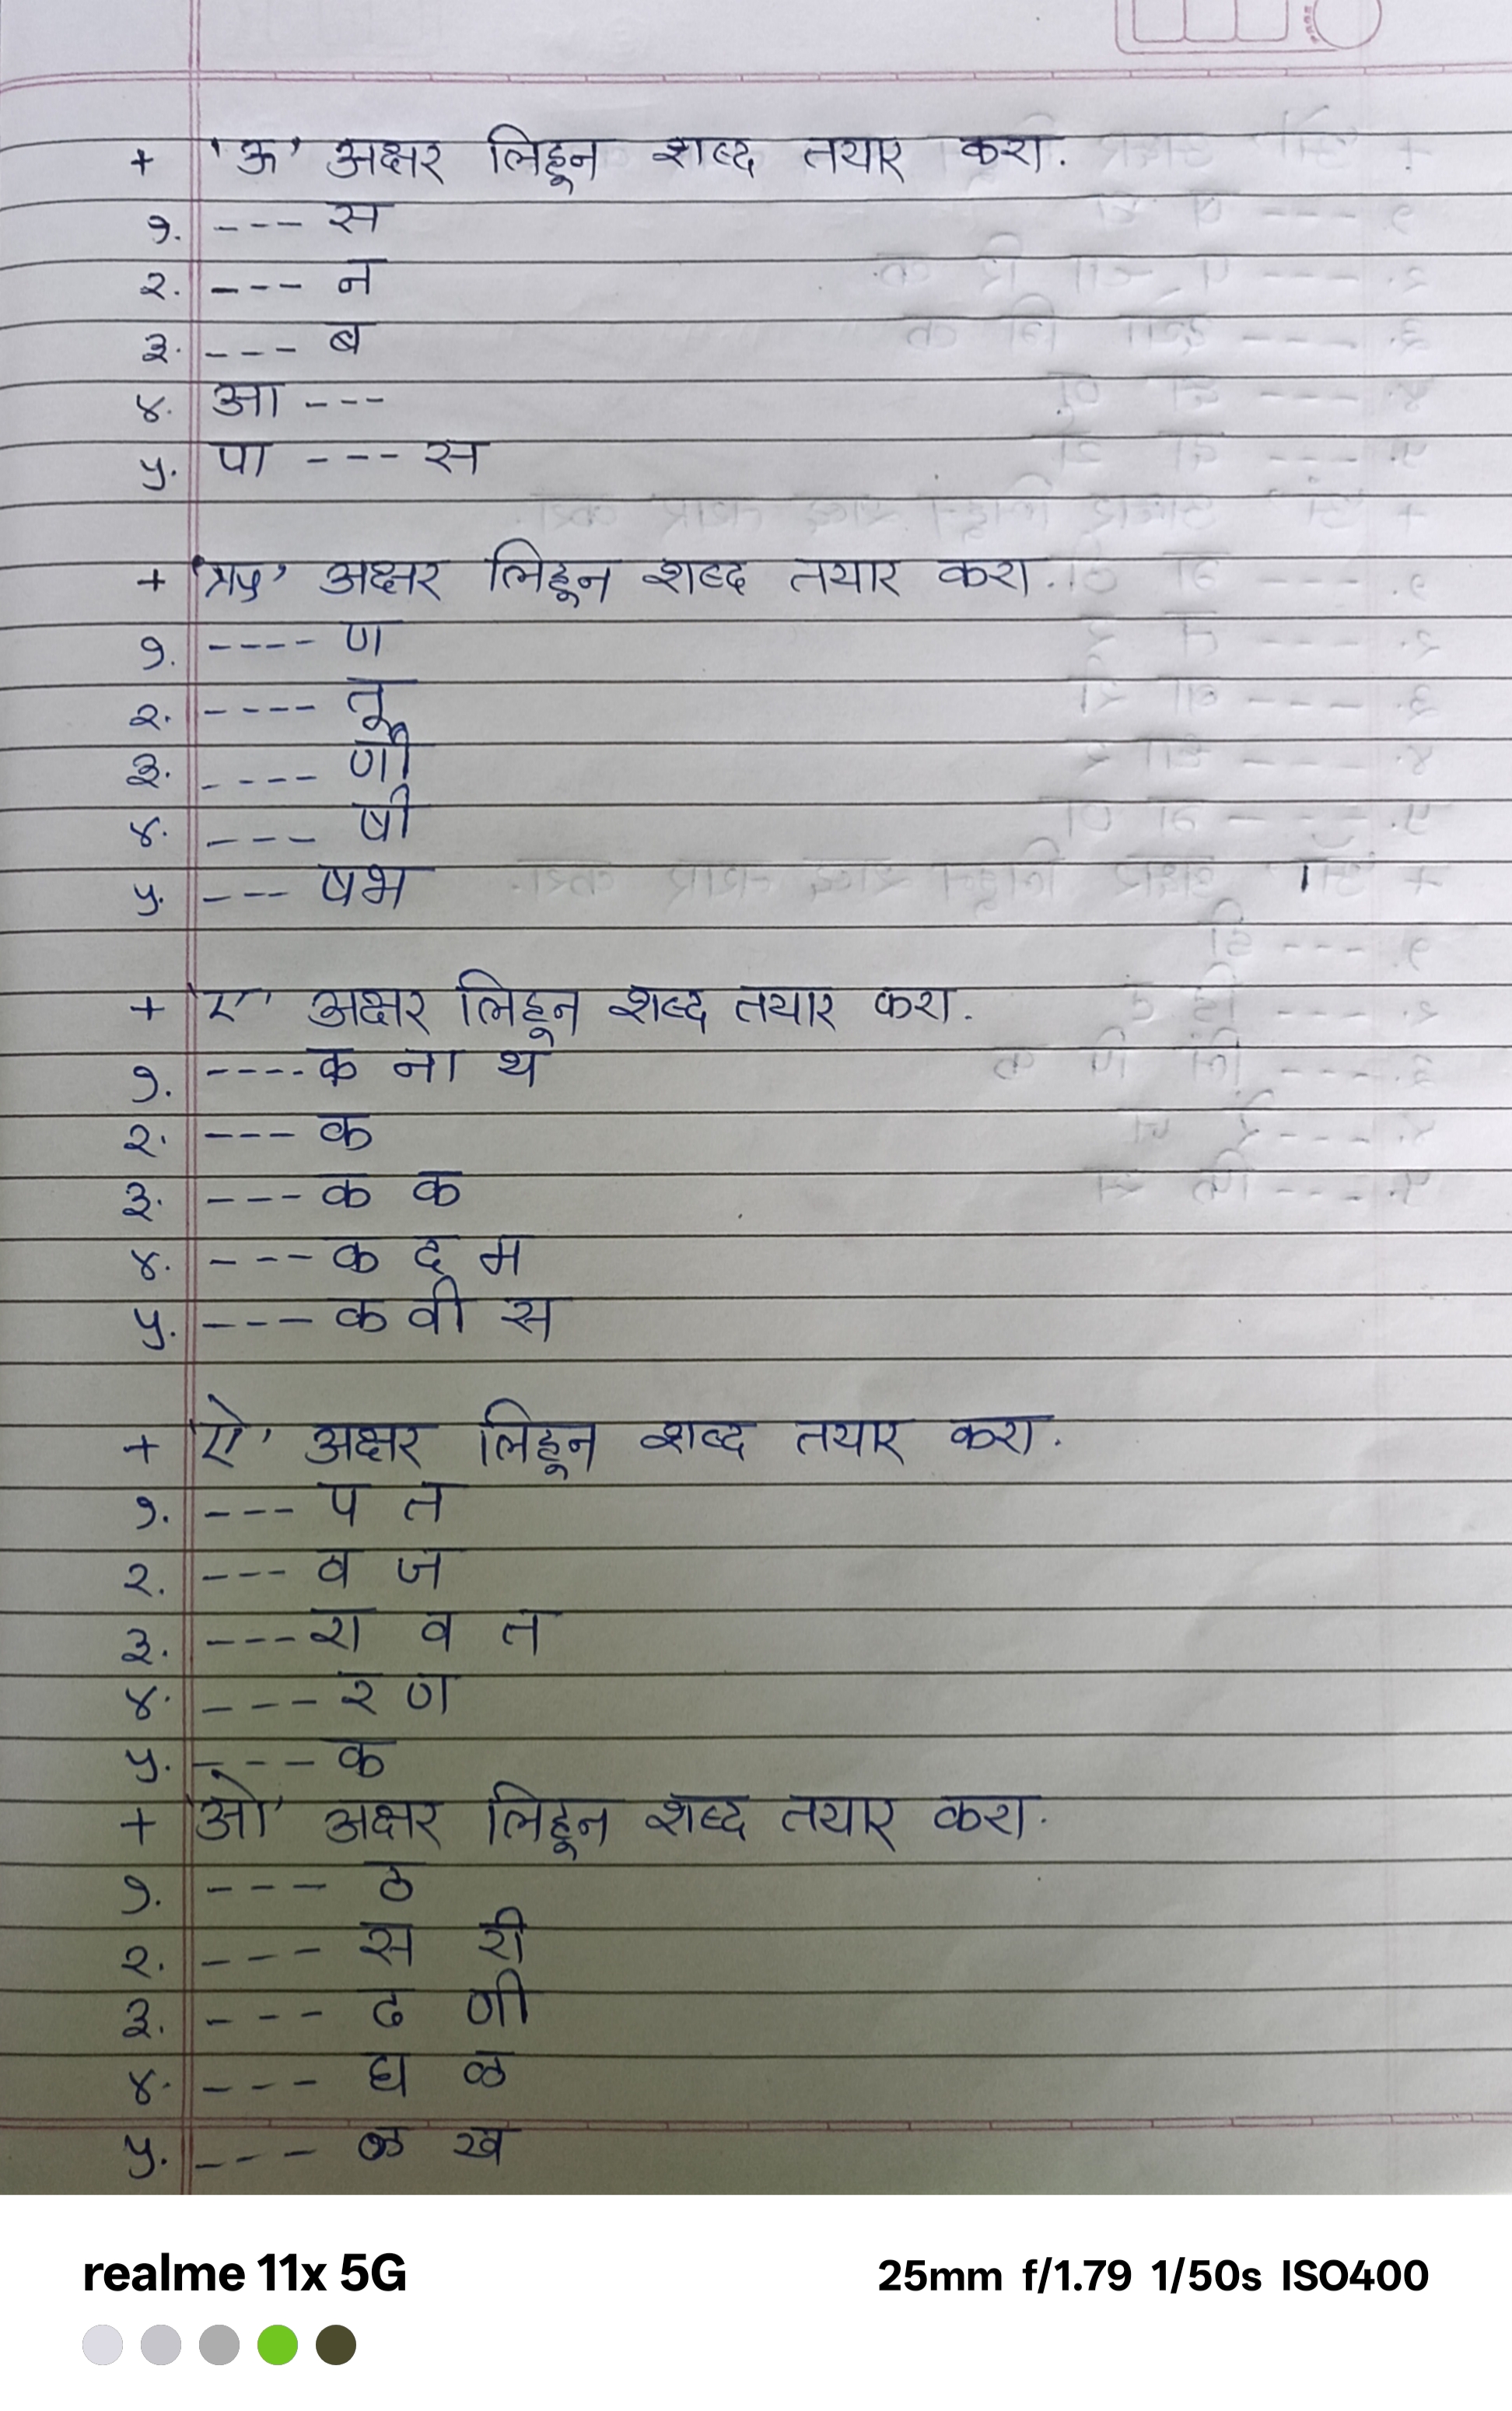 + 'ऊ' अक्षर लिहून शब्द तयार करा.
१. --- स
२. --- न
३. --- ब
४. आ ---
५. पा --- स
+ 'ऋ' अक्षर लिहून शब्द तयार करा.
१. ---- ण
२. ---- तू
३. ---- णी
४. --- षी
५. --- षभ
+ 'ए' अक्षर लिहून शब्द तयार करा.
१. ---- क ना थ
२. --- क
३. --- क क
४. --- क द म
५. --- क वी स
+ 'ऐ' अक्षर लिहून शब्द तयार करा.
१. --- प त
२. --- व ज
३. --- रा व त
४. --- र ण
५. --- क
+ 'ओ' अक्षर लिहून शब्द तयार करा.
१. --- ठ
२. --- स री
३. --- ढ णी
४. --- घ ळ
५. --- ळ ख
realme 11x 5G 25mm f/1.79 1/50s ISO400